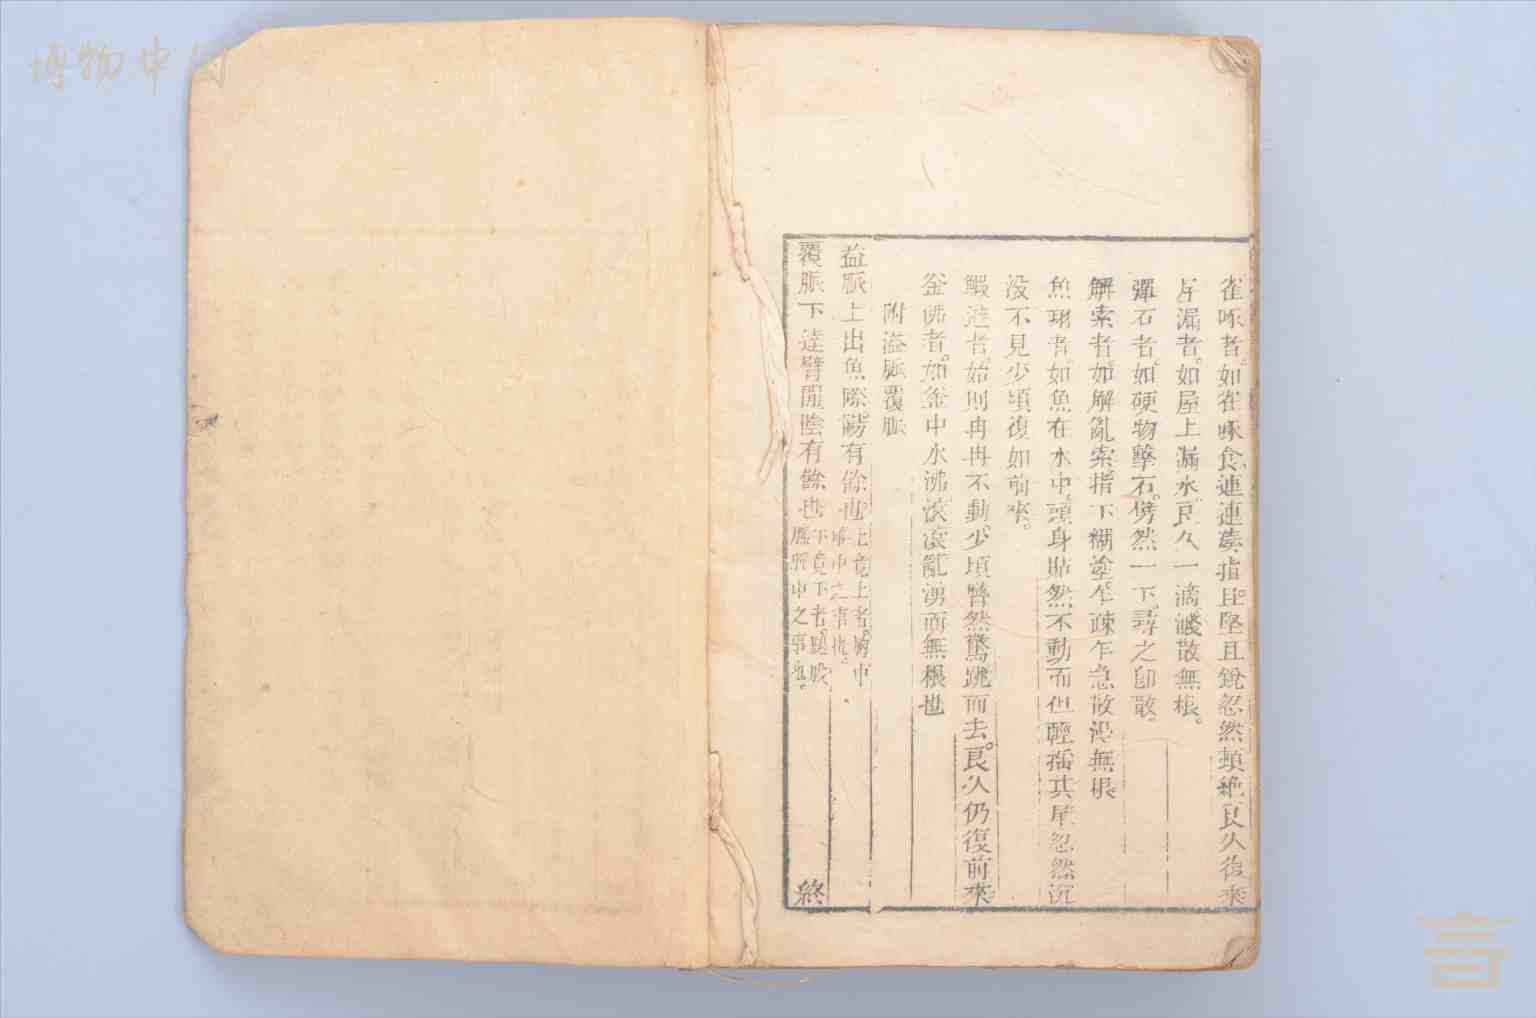 雀啄者。如雀啄食。連連湊指。且堅且銳。忽然頓絕。良久復來
屋漏者。如屋上漏水。良久一滴。濺散無根。
彈石者。如硬物擊石。劈然一下。尋之卽散。
解索者。如解亂索。指下糊塗。乍疎乍急。散漫無根。
魚翔者。如魚在水中。頭身貼然不動。而但輕搖其尾。忽然沉
沒不見。少頃復如前來。
蝦遊者。始則冉冉不動。少頃瞥然驚跳而去。良久仍復前來
釜沸者。如釜中水沸。滾滾亂湧而無根也
附溢脈覆脈
溢脈上出魚際。陽有餘也。上竟上者。胸中事中之事也。
覆脈下達臂間。陰有餘也。下竟下者。腿股中之事也。
終
博物中国
言